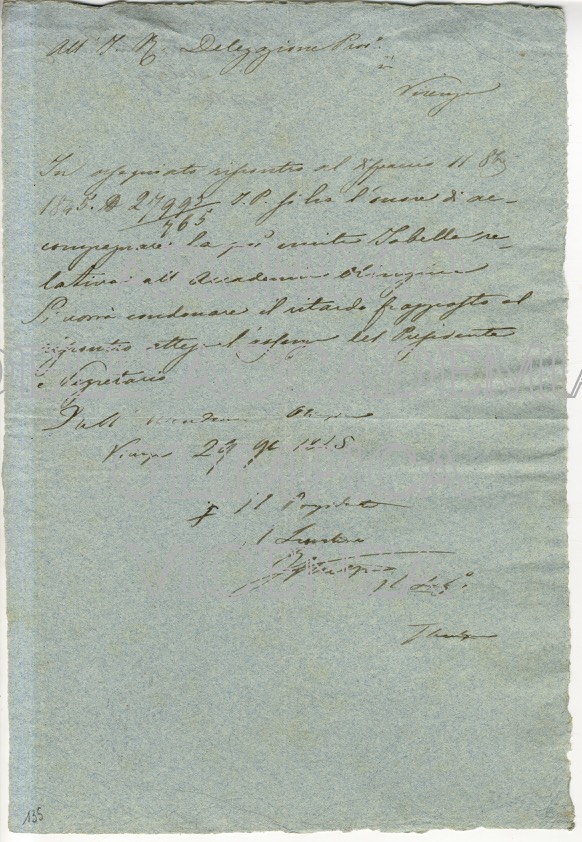 All' I. R. Delegazione Prov.
in
Vicenza
In ossequiato riscontro al dispaccio 11 8bre
1845. N 27995 I.P. si ha l'onore di ac-
765
compagnare la qui unita Tabella re-
lativa all' Accademia Olimpica
Si vorrà condonare il ritardo frapposto al
riscontro attesa l'assenza del Presidente
e Segretario
Dall' Accademia Olimpica
Vicenza 29
Il Presidente
Il
135